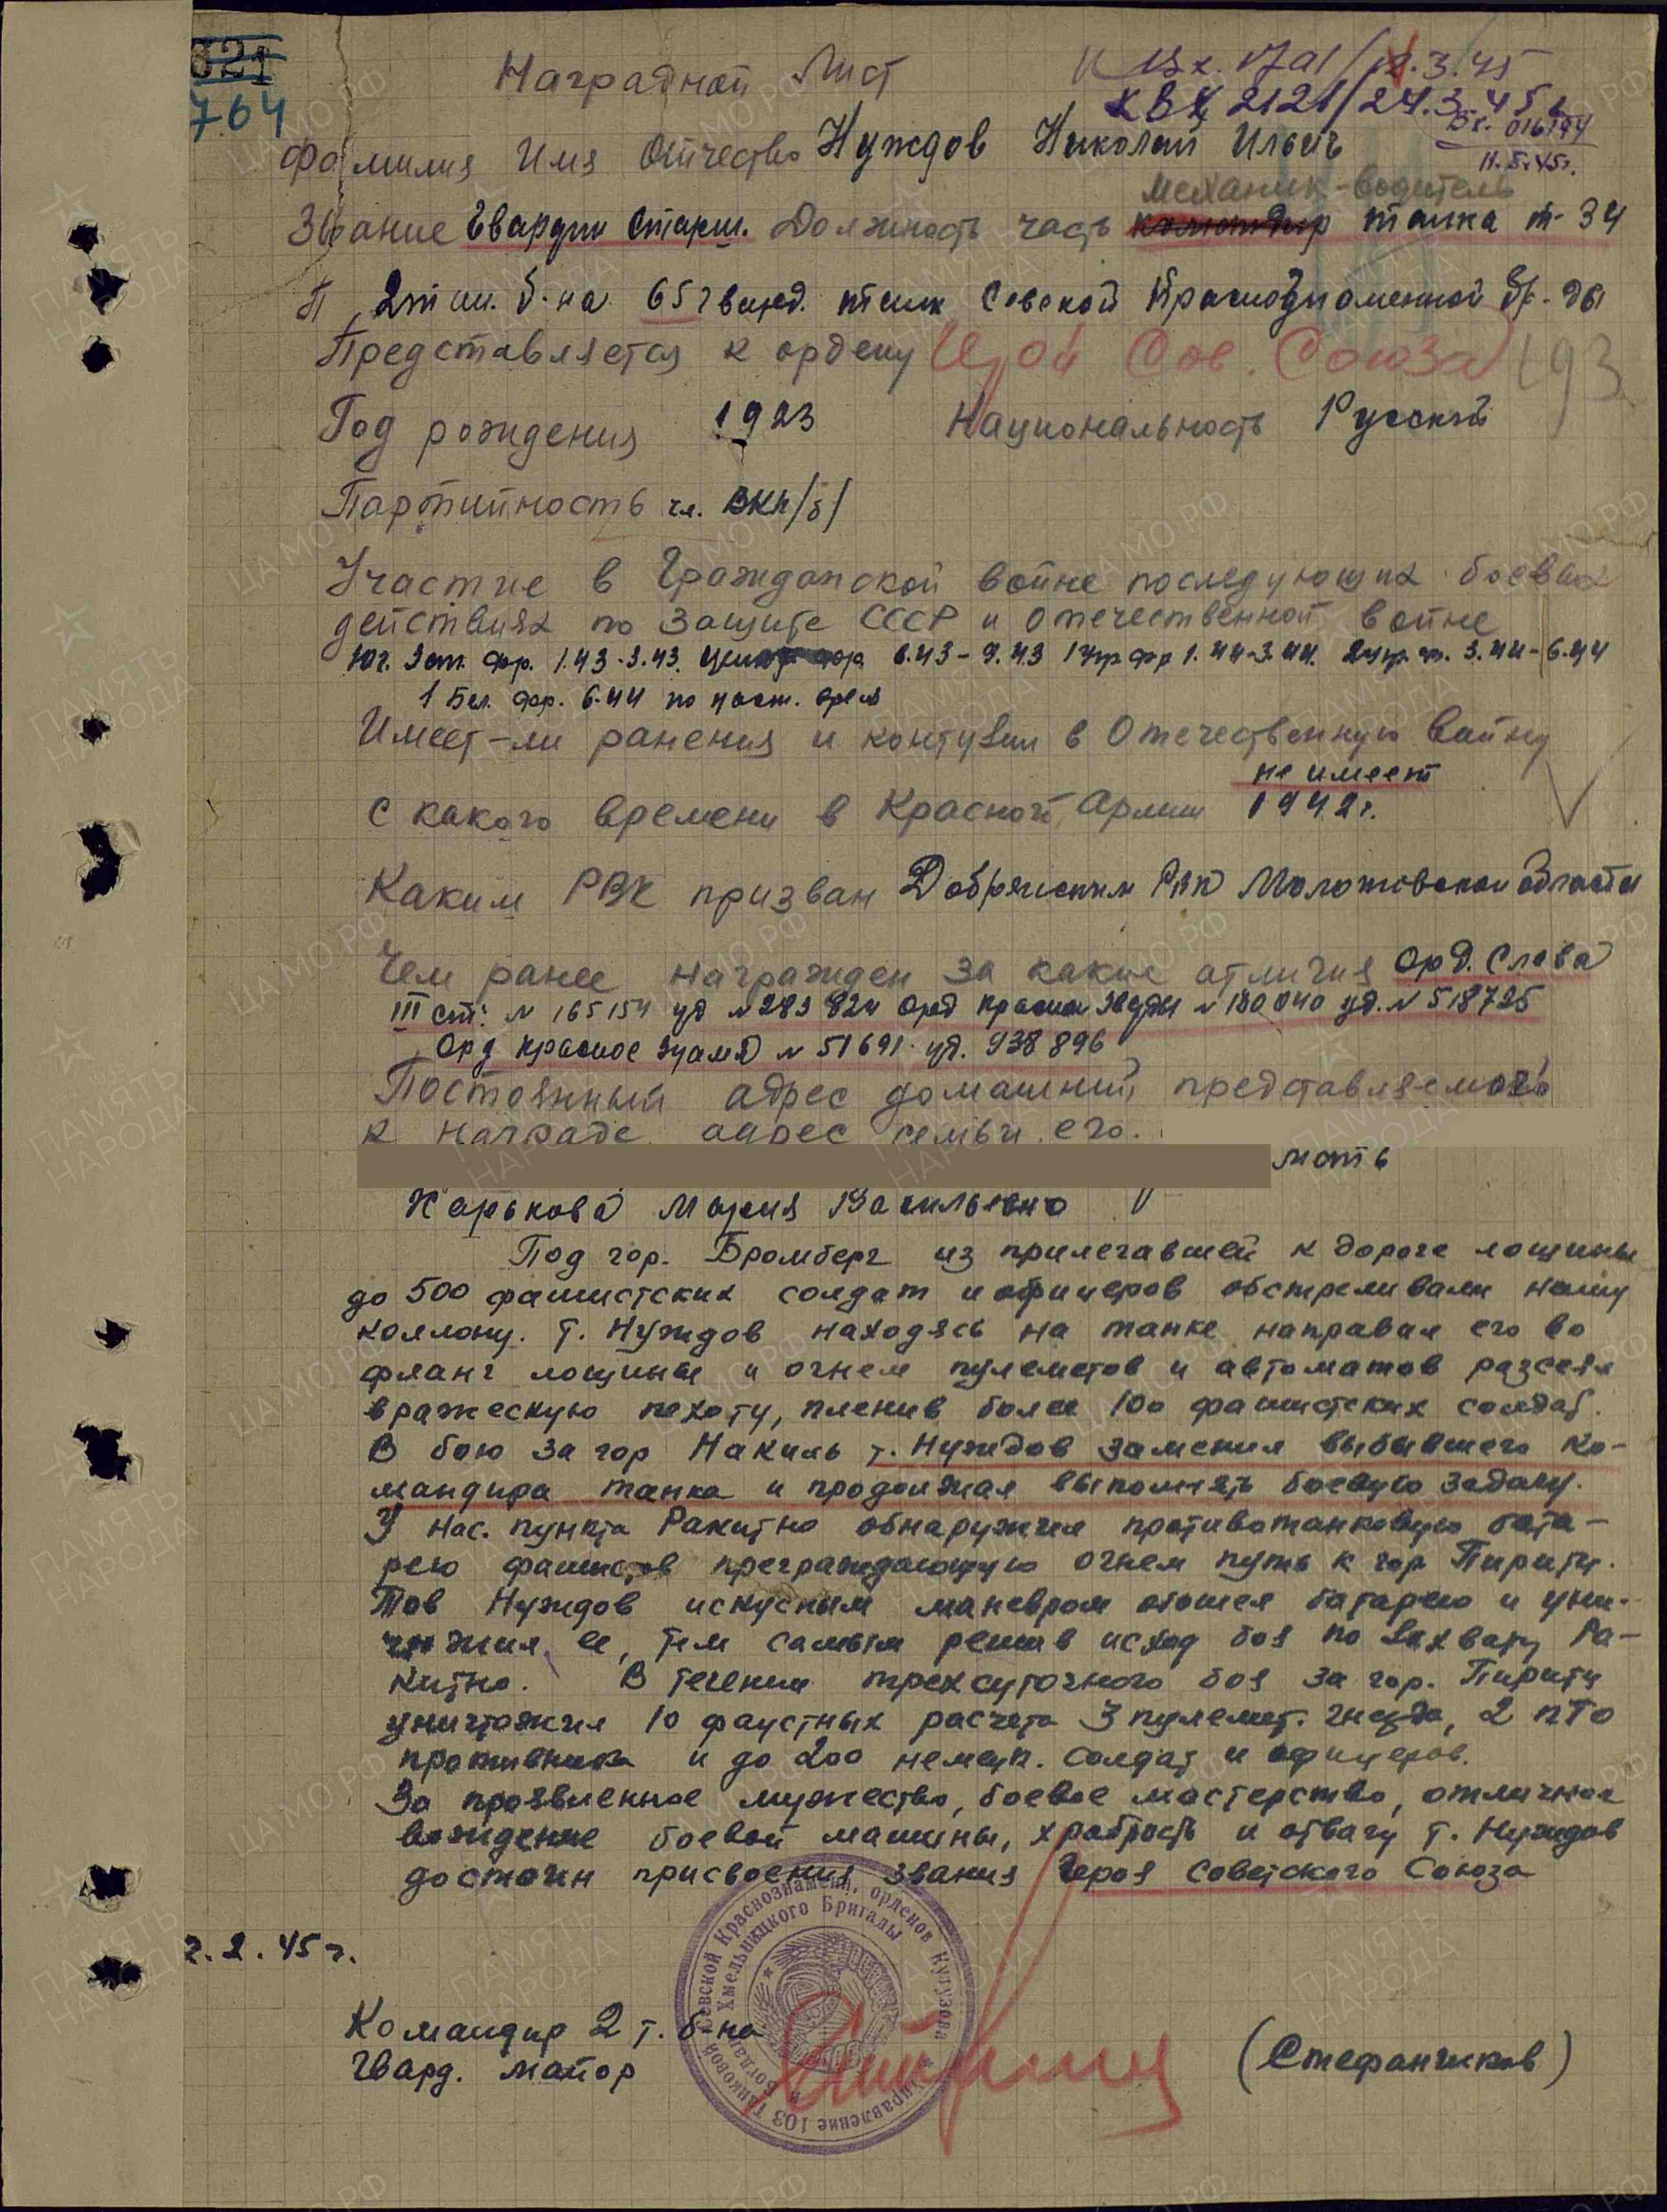 621
764
Наградной Лист
К Вх. 1701/12.3.45
К ВХ 2121/24.3.45г.
Вх. 016194
11.5.45г.
Фамилия Имя Отчество Нуждов Николай Ильич
механик-водитель
Звание Гвардии Старш. Должность часть командир танка т-34
2 тан. б-на 65 гвард. танк Севской Краснознаменной бр-ды
Представляется к ордену Герой Сов. Союза
193
Год рождения 1923 Национальность Русский
Партийность чл. ВКП/б/
Участие в Гражданской войне последующих боевых
действиях по защите СССР и отечественной войне
Юг. Зап. фр. 1.43-3.43. Центр фр. 6.43-9.43 1 Укр фр 1.44-3.44. 2 Укр. ф. 3.44-6.44
1 Бел. фр. 6.44 по наст. время
Имеет-ли ранения и контузии в Отечественную войну
не имеет
С какого времени в Красной Армии 1942г.
Каким РВК призван Добрянским РВК Молотовской области
Чем ранее награжден за какие отличия Орд. Слава
III ст: № 165154 уд № 283824 Орд Красная Звезды № 180040 уд. № 518725
Орд Красное Знамя № 51691 уд. 938896
Постоянный адрес домашний представляемого
к награде адрес семьи его.
мать
Харькова Мария Васильевна
Под гор. Бромберг из прилегавшей к дороге лощины
до 500 фашистских солдат и офицеров обстреливали нашу
коллону. т. Нуждов находясь на танке направил его во
фланг лощины и огнем пулеметов и автоматов разсеял
вражескую пехоту, пленив более 100 фашистских солдат.
В бою за гор Накиль т. Нуждов заменил выбывшего ко-
мандира танка и продолжал выполнять боевую задачу.
У нас. пункта Ракитно обнаружил противотанковую бата-
рею фашистов преграждающую огнем путь к гор Пириту.
Тов Нуждов искусным маневром обошел батарею и уни-
чтожил ее, тем самым решив исход боя по захвату Ра-
китно. В течении трехсуточного боя за гор. Пириту
уничтожил 10 фаустных расчета 3 пулемет. гнезда, 2 ПТО
противника и до 200 немецк. солдат и офицеров.
За проявленное мужество, боевое мастерство, отличное
вождение боевой машины, храбрость и отвагу т. Нуждов
достоин присвоения звания Героя Советского Союза
2.2.45г.
Командир 2 т. б-на
Гвард. майор
(Стефанчиков)
Управление 103 Танковой Севской Краснознаменн, орденов Кутузова
и Богдана Хмельницкого Бригады